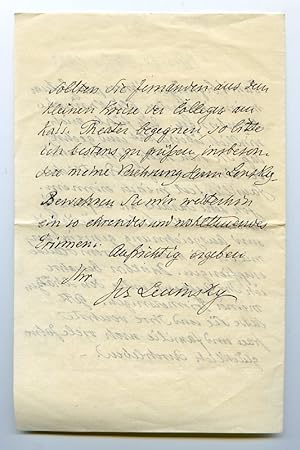 Sollten Sie Jemanden aus dem
kleinen Kreise der Collegen am
kais. Theater begegnen, so bitte
ich bestens zu grüßen, insbeson
dere meine Verehrung Herrn Lensky.
Bewahren Sie mir weiterhin
ein so ehrendes und wohltuendes
Erinnern.
Aufrichtig ergeben
Ihr
Jos Lewinsky